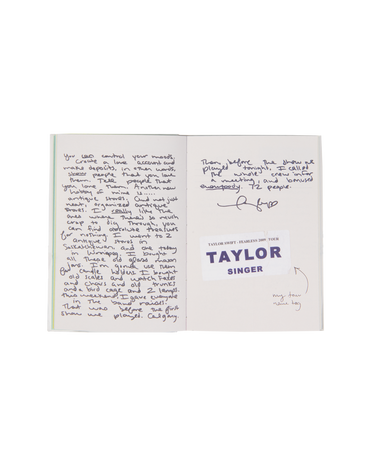 You can control your moods.
Create a love account and
make deposits, in other words,
people that you love
them. Tell people that
you love them. Another new
hobby of mine is.....
antique stores. And not just
neat, organized antique
stores. I really like the
ones where there's so much
crap to dig through you
can find absolute treasures
for nothing. I went to 2
antique stores in
Saskatchewan and one today
in Winnipeg. I bought
all these old glass mason
jars. I'm gonna use them
for candle holders. I bought
old scales and watch faces
and chains and old trunks
and a bird cage and 2
This weekend, I gave everyone
in the band raises.
That was before the first
show we played. Calgary.
Then, before the show we
played tonight, I called
the whole crew into
a meeting, and bonused
everybody. 72 people.
TAYLOR SWIFT - FEARLESS 2009 TOUR
TAYLOR
SINGER
my tour
name tag